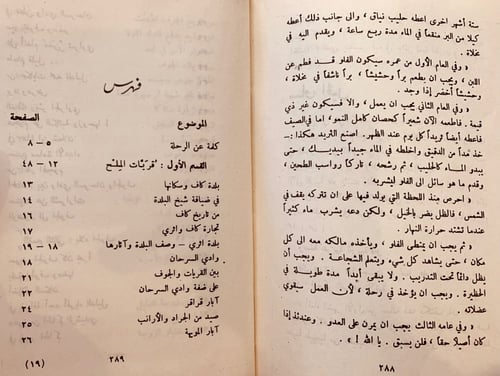 ستة أشهر اخرى اعطه حليب نياق ، والى جانب ذلك أعطه
كيلا من البر منقعاً في الماء مدة ربع ساعة ، ويقدم اليه في
مخلاة .
« وفي العام الأول من عمره سيكون الفلو قد فطم عن
اللبن ، ويجب ان يطعم براً وحشيشاً , براً ناشفاً في مخلاة ،
وحشيشاً أخضر إذا وجد .
« وفي العام الثاني يجب ان يعمل ، والا فسيكون غير ذي
قيمة . فاطعمه الآن شعيراً كحصان كامل النمو ، اما في الصيف
فاعطه أيضاً ثريداً كل يوم عند الظهر . اصنع الثريد هكذا : ــ
خذ مداً من الدقيق واخلطه في الماء جيداً بيديك ، حتى
يبدو الماء كالحليب ، ثم رشحه ، تاركاً رواسب الطحين ،
وقدم ما هو سائل الى الفلو ليشربه .
« احرص منذ اللحظة التي يولد فيها على ان تتركه يقف في
الشمس ، فالظل يضر بالخيل ، ولكن دعه يشرب ماء كثيراً
عندما تشتد حرارة النهار .
« ثم يجب ان يمتطى الفلو ، ويأخذه مالكه معه الى كل
مكان ، حتى يشاهد كل شيء ويتعلم الشجاعة . ويجب أن
يظل دائماً تحت التدريب . ولا يبقى أبداً مدة طويلة في
الحظيرة . ويجب ان يؤخذ في رحلة ، لأن العمل سيقوي
عضلاته .
« وفي عامه الثالث يجب ان يمرن على العدو . وعندئذ إذا
كان أصيلا حقاً ، فلن يسبق . يا الله ! » .
٢٨٨
فهرس
الموضوع الصفحة
كلمة عن الرحلة ٥ – ٨
القسم الأول : قريّات الملح ١٢ – ٤٨
بلدة كاف وسكانها ١٣
في ضيافة شيخ البلدة ١٤
من تاريخ كاف ١٦
تجارة كاف واثري ١٧
بلدة اثري – وصف البلدة وآثارها ١٨ – ١٩
وادي السرحان ١٨
بين القريات والجوف ٢١
على ضفة وادي السرحان ٢٢
آبار قراقر ٢٤
صيد من الجراد والأرانب ٢٥
آبار المويهة ٢٦
٢٨٩ (١٩)